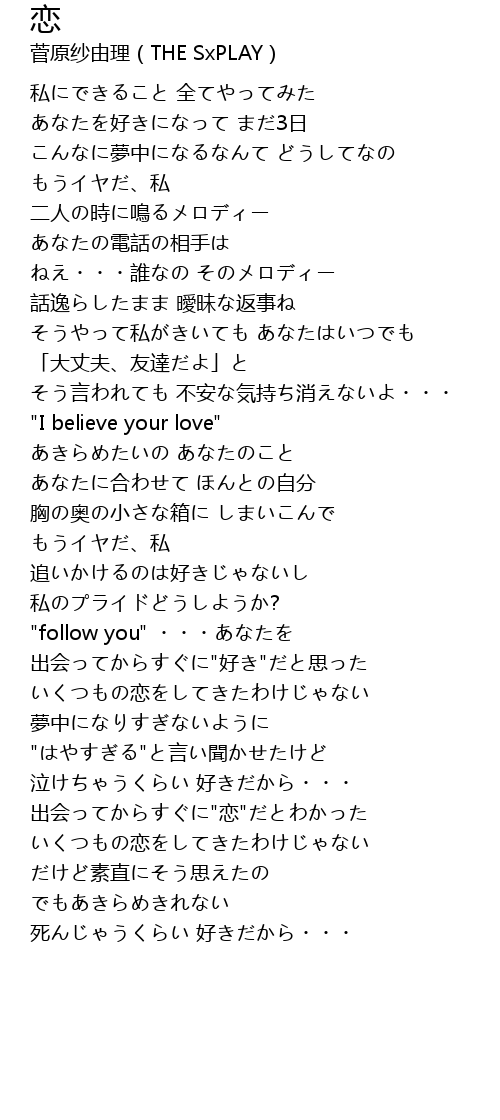 恋
菅原纱由理 ( THE SxPLAY )
私にできること 全てやってみた
あなたを好きになって まだ3日
こんなに夢中になるなんて どうしてなの
もうイヤだ、私
二人の時に鳴るメロディー
あなたの電話の相手は
ねえ・・・誰なの そのメロディー
話逸らしたまま 曖昧な返事ね
そうやって私がきいても あなたはいつでも
「大丈夫、友達だよ」と
そう言われても 不安な気持ち消えないよ・・・
"I believe your love"
あきらめたいの あなたのこと
あなたに合わせて ほんとの自分
胸の奥の小さな箱に しまいこんで
もうイヤだ、私
追いかけるのは好きじゃないし
私のプライドどうしようか?
"follow you" ・・・あなたを
出会ってからすぐに"好き"だと思った
いくつもの恋をしてきたわけじゃない
夢中になりすぎないように
"はやすぎる"と言い聞かせたけど
泣けちゃうくらい 好きだから・・・
出会ってからすぐに"恋"だとわかった
いくつもの恋をしてきたわけじゃない
だけど素直にそう思えたの
でもあきらめきれない
死んじゃうくらい 好きだから・・・